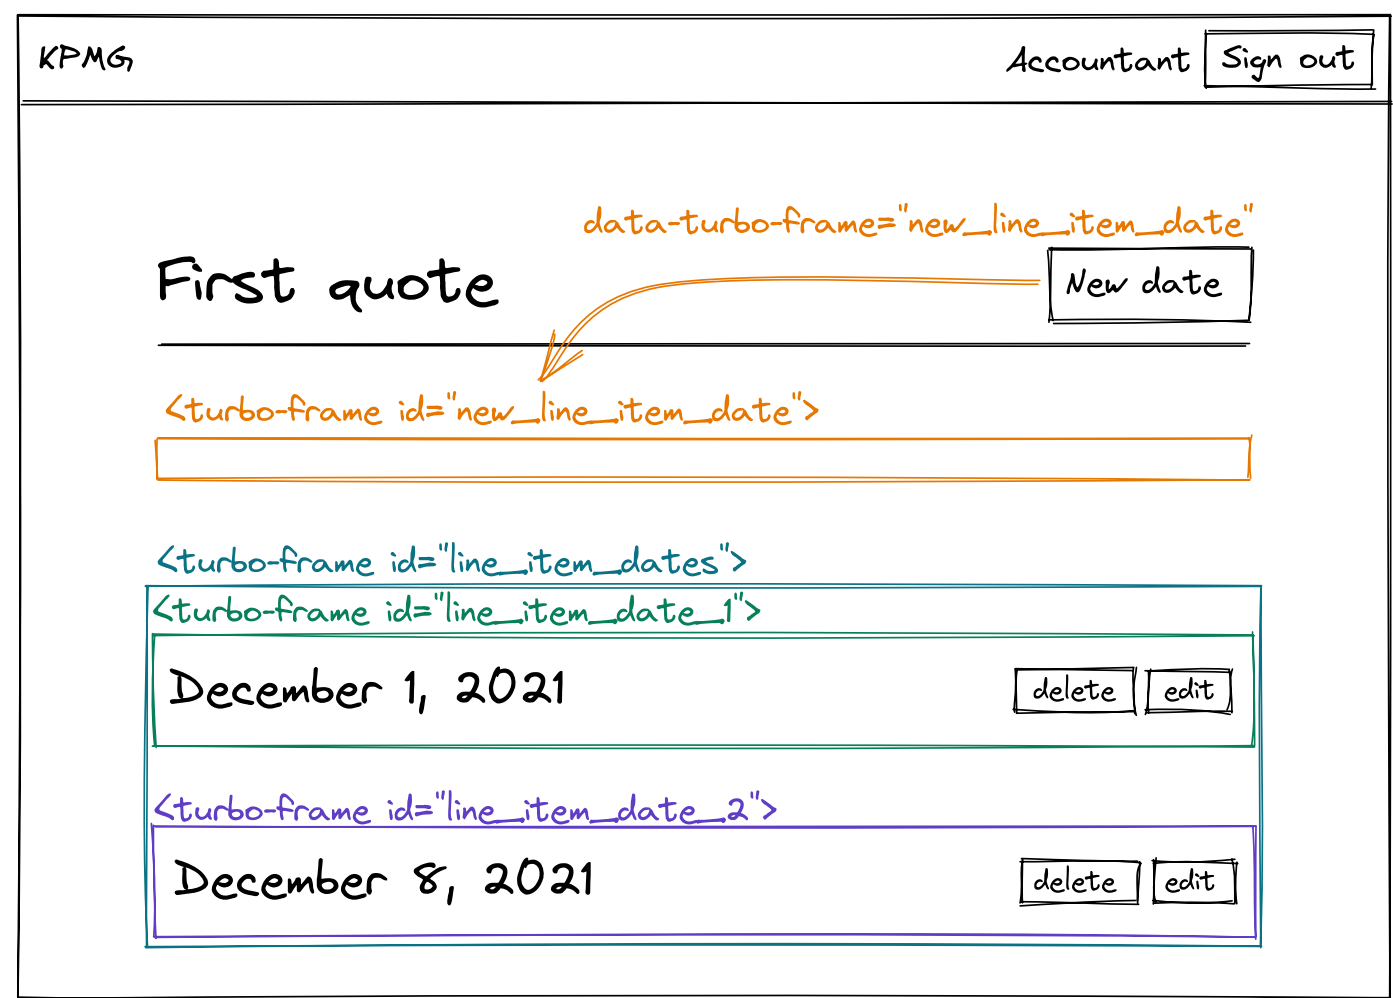 KPMG
Accountant
Sign out
data-turbo-frame="new_line_item_date"
First quote
New date
<turbo-frame id="new_line_item_date">
<turbo-frame id="line_item_dates">
<turbo-frame id="line_item_date_1">
December 1, 2021
delete
edit
<turbo-frame id="line_item_date_2">
December 8, 2021
delete
edit